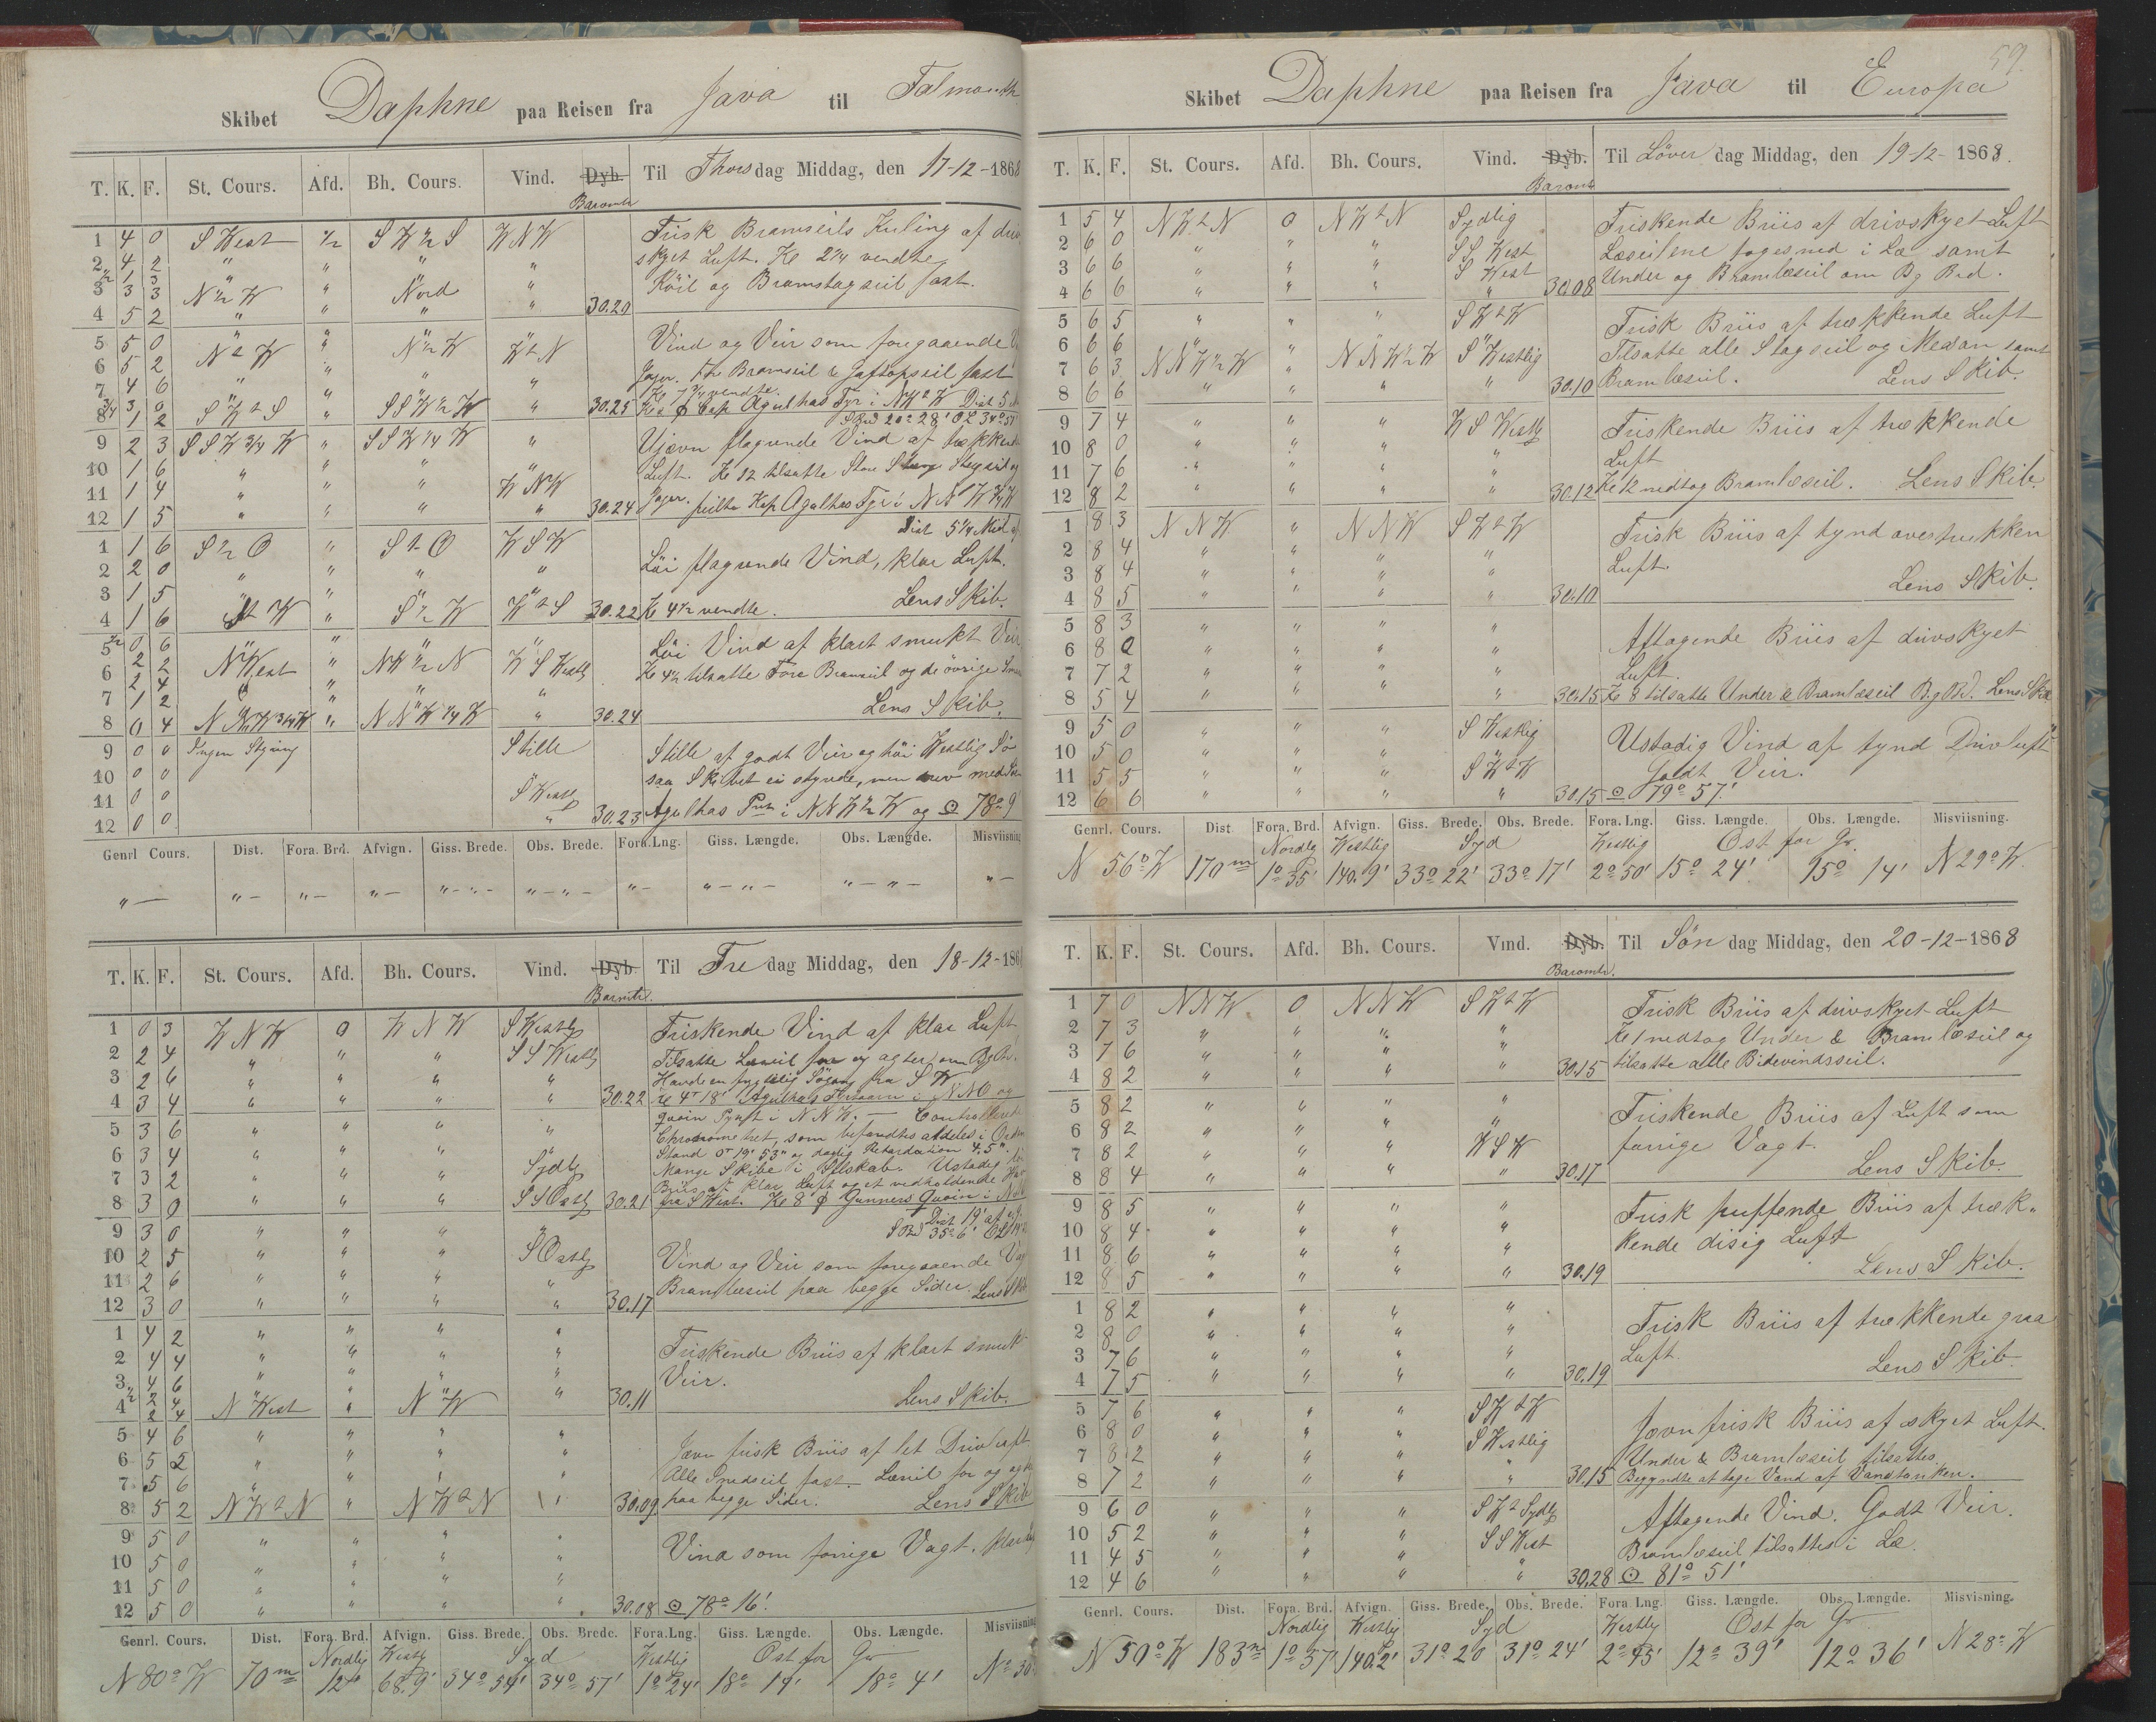 Skibet Daphne paa Reisen fra Java til Falmouth
T. K. F. St. Cours. Afd. Bh. Cours. Vind. Dyb. Til Thorsdag Middag, den 17-12-1868
Baromtr
1 4 0 S West 1/2 S W 1/2 S W N W Frisk Bramseils Kuling af driv
2 4 2 " " " " skyet Luft. Kl 2 1/4 vendte
1/2 1 3
3 3 3 N 1/2 W " Nord " Röil og Bramstagseil fast.
4 5 2 " " " " 30.20
5 5 0 " " " " Vind og Veir som foregaaende
6 5 2 N t W " N 1/2 W W t N Jager. Fr Bramseil & Gaftopseil fast
7 4 6 " " " " Kl 7 3/4 vendte.
3/4 3 0
8 1 2 S W t S " S S W 1/2 W " 30.25 Cap Agulhas Fyr i NW t W Dist 5
9 2 3 S S W 3/4 W " S S W 1/4 W " Ujævn flagrende Vind af trækkende
10 1 6 " " " " Luft. Kl 12 tilsatte Store Stang Stagseil og
11 1 4 " " " W N W
12 1 5 " " " " 30.24 Jager. peilte Kap Agulhas Fyr i N N W 3/4 W
Dist 5 1/4 Mil
1 1 6 S 1/2 O " S t O W S W Löi flagrende Vind, klar Luft.
2 2 0 " " " "
3 1 5 " " " " Lens Skib.
4 1 6 S t W " S 1/2 W W t S 30.22 Kl 4 1/2 vendte.
1/2 0 6
5 2 2 " " " " Löi Vind af klart smukt Veir
6 2 4 N West " NW 1/2 N W S Westlg Kl 4 1/2 tilsatte Fore Bramseil og de övrige
7 1 2 " " " " Lens Skib.
8 0 4 " N N W 1/4 W " 30.24
9 0 0 Ingen Styring Stille Stille af godt Veir og höi Westlig Sö
10 0 0 saa Skibet ei styrede, men drev med
11 0 0 S Westlg
12 0 0 " 30.23 Agulhas Pnt i N N W 1/2 W og ⊙ 78° 9'
Genrl Cours. Dist. Fora. Brd. Afvign. Giss. Brede. Obs. Brede. Fora. Lng. Giss. Længde. Obs. Længde. Misviisning
" — " — " — " — " — " — " — " — " — " — " — " —
T. K. F. St. Cours. Afd. Bh. Cours. Vind. Dyb. Til Fredag Middag, den 18-12-186
Baromtr.
1 0 3 W N W 0 W N W S Westlg Friskende Vind af klar Luft
2 2 4 " " " S S Westlg Tilsatte Læseil for og agter om Bg Brd.
3 2 6 " " " "
4 3 4 " " " " 30.22 Kl 4 T 18' Agulhas Fyrtaarn i N N O og
5 3 6 " " " " Quoin Pynt i N N W. — Controlleret
6 3 4 " " " " Chronometret, som befandtes aldeles i Orden
Stand 0 T 19' 53" og daglig Retardation 4.5".
7 3 2 " " " Sydlg Mange Skibe i Selskab. Ustadig
Briis af klar Luft og et vedholdende
8 3 0 " " " S S Ostlg 30.21 fra S West. Kl 8 Gunners Quoin i
Dist 19' af
9 3 0 " " " " S Brd 35° 6'
10 2 5 " " " S Ostlg Vind og Veir som foregaaende
11 2 6 " " " " Bramlæseil paa begge Sider. Lens Skib
12 3 0 " " " " 30.17
1 4 2 " " " " Friskende Briis af klart smukt
2 4 4 " " " " Veir.
3 4 6 " " " "
1/2 2 4
4 2 4 N West " N W " 30.11 Lens Skib.
5 4 6 " " " " Jævn frisk Briis af let Drivluft
6 5 2 " " " " Alle Smaaseil fast. Læseil for og agter
7 5 6 " " " "
8 5 2 N W t N " N W t N " 30.09 paa begge Sider. Lens Skib
9 5 0 " " " " Vind som forrige Vagt.
10 5 0 " " " "
11 5 0 " " " "
12 5 0 " " " " 30.08 ⊙ 78° 16'.
Genrl. Cours. Dist. Fora. Brd. Afvign. Giss. Brede. Obs. Brede. Fora. Lng. Giss. Længde. Obs. Længde. Misviisning
Nordlg Westlg Syd Westlg Ost for Gr
N 80° W 70 m 12' 68.9' 34° 54' 34° 57' 1° 24' 18° 19' 18° 4' N 30°
59.
Skibet Daphne paa Reisen fra Java til Europa
T. K. F. St. Cours. Afd. Bh. Cours. Vind. Dyb. Til Löverdag Middag, den 19-12-1868.
Baromtr
1 5 4 N W t N 0 N W t N Sydlig Friskende Briis af drivskyet Luft
2 6 0 " " " S S West Læseilene toges ned i Læ samt
3 6 6 " " " S West
4 6 6 " " " " 30.08 Under og Bramlæseil om Bg Brd.
5 6 5 " " " S W t W Frisk Briis af trækkende Luft
6 6 6 " " " " Tilsatte alle Stagseil og Mesan samt
7 6 3 N N W 1/2 W " N N W 1/2 W S Westlig
8 6 6 " " " " 30.10 Bramlæseil. Lens Skib.
9 7 4 " " " W S Westlg Friskende Briis af trækkende
10 8 0 " " " " Luft
11 7 6 " " " "
12 8 2 " " " " 30.12 Kl 12 nedtog Bramlæseil. Lens Skib.
1 8 3 N N W " N N W S W t W Frisk Briis af tynd overtrukken
2 8 4 " " " " Luft.
3 8 4 " " " " Lens Skib.
4 8 5 " " " " 30.10
5 8 3 " " " " Aftagende Briis af drivskyet
6 8 0 " " " " Luft.
7 7 2 " " " "
8 5 4 " " " " 30.15 Kl 8 tilsatte Under & Bramlæseil Bg Brd. Lens Skib
9 5 0 " " " S Westlig Ustadig Vind af tynd Drivluft
10 5 0 " " " " Godt Veir.
11 5 5 " " " S W t W
12 6 6 " " " " 30.15 ⊙ 79° 57.'
Genrl. Cours. Dist Fora. Brd. Afvign. Giss. Brede. Obs. Brede. Fora. Lng. Giss. Længde. Obs. Længde. Misviisning.
Nordlg Westlig Syd Westlig Ost for Gr.
N 56° W 170 m 1° 35' 140.9' 33° 22' 33° 17' 2° 50' 15° 24' 15° 14' N 29° W.
T. K. F. St. Cours. Afd. Bh. Cours. Vind. Dyb. Til Söndag Middag, den 20-12-1868
Baromtr.
1 7 0 N N W 0 N N W S W t W Frisk Briis af drivskyet Luft
2 7 3 " " " " Kl 1 nedtog Under & Bramlæseil og
3 7 6 " " " "
4 8 2 " " " " 30.15 tilsatte alle Bidevindsseil.
5 8 2 " " " " Friskende Briis af Luft som
6 8 2 " " " " forrige Vagt.
7 8 2 " " " W S W
8 8 4 " " " " 30.17 Lens Skib.
9 8 5 " " " " Frisk puffende Briis af træk-
10 8 4 " " " " kende disig Luft
11 8 6 " " " "
12 8 5 " " " " 30.19 Lens Skib.
1 8 2 " " " " Frisk Briis af trækkende graa
2 8 0 " " " " Luft.
3 7 6 " " " " Lens Skib.
4 7 5 " " " " 30.19
5 7 6 " " " S W t W Jævn frisk Briis af skyet Luft.
6 8 0 " " " S Westlig Under & Bramlæseil tilsattes.
7 8 2 " " " "
8 7 2 " " " " 30.15 Begyndte at tage Vand af Vandtanken.
9 6 0 " " " S W t Sydlg Aftagende Vind. Godt Veir.
10 5 2 " " " S S West Bramlæseil tilsattes i Læ.
11 4 5 " " " "
12 4 6 " " " " 30.28 ⊙ 81° 51'
Genrl. Cours. Dist. Fora. Brd. Afvign. Giss. Brede. Obs. Brede. Fora Lng. Giss. Længde. Obs. Længde. Misvisning.
Nordlig Westlig Syd Westlg Ost for Gr
N 50° W 183 m 1° 57' 140.2' 31° 20' 31° 24' 2° 45' 12° 39' 12° 36' N 28° W